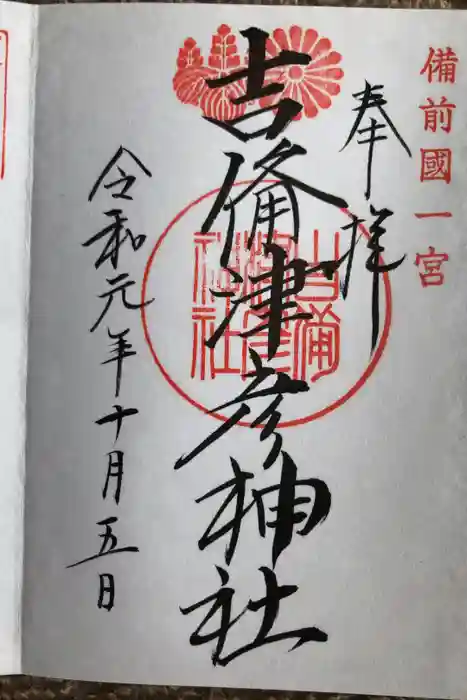 備前國一宮
奉拝
吉備津彦神社
吉備
津彦
神社
令和元年十月五日